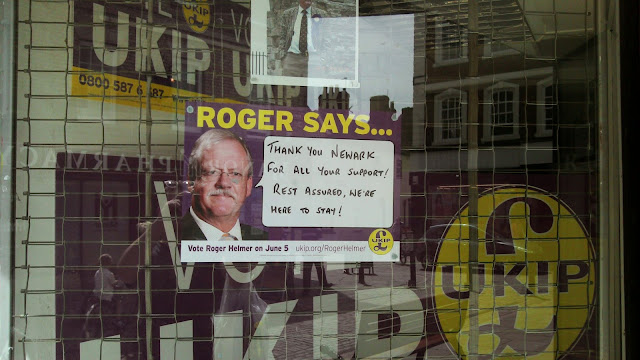 UKIP
VO
UKIP
0800 587 6 587
UKIP
UKIP
PHARMACY
ROGER SAYS...
THANK YOU NEWARK
FOR ALL YOUR SUPPORT!
REST ASSURED, WE'RE
HERE TO STAY!
Vote Roger Helmer on June 5 ukip.org/RogerHelmer
£
UKIP
VOTE
UKIP
£
UKIP